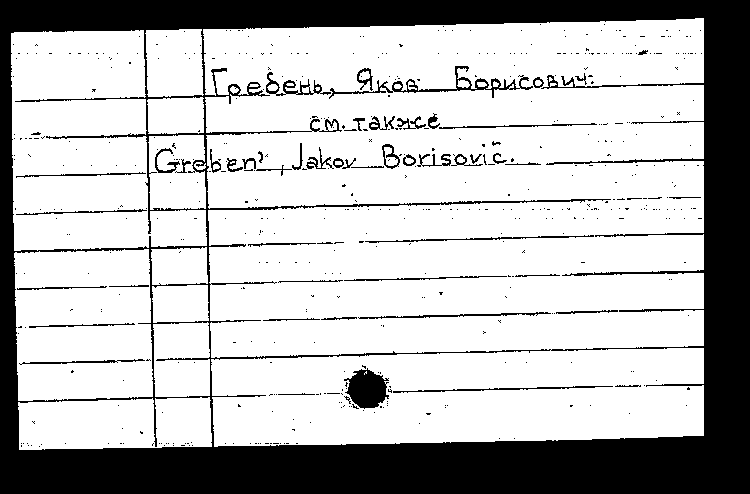 Гребень, Яков Борисович.
см. также
Greben', Jakov Borisovič.